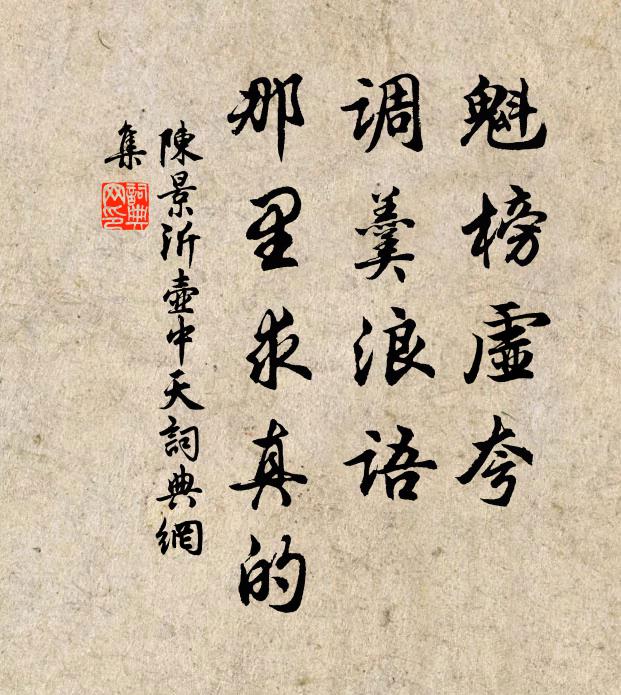 魁榜虚夸
调羹浪语
那里求真的
陳景沂壺中天詞典網
集
詞典网印